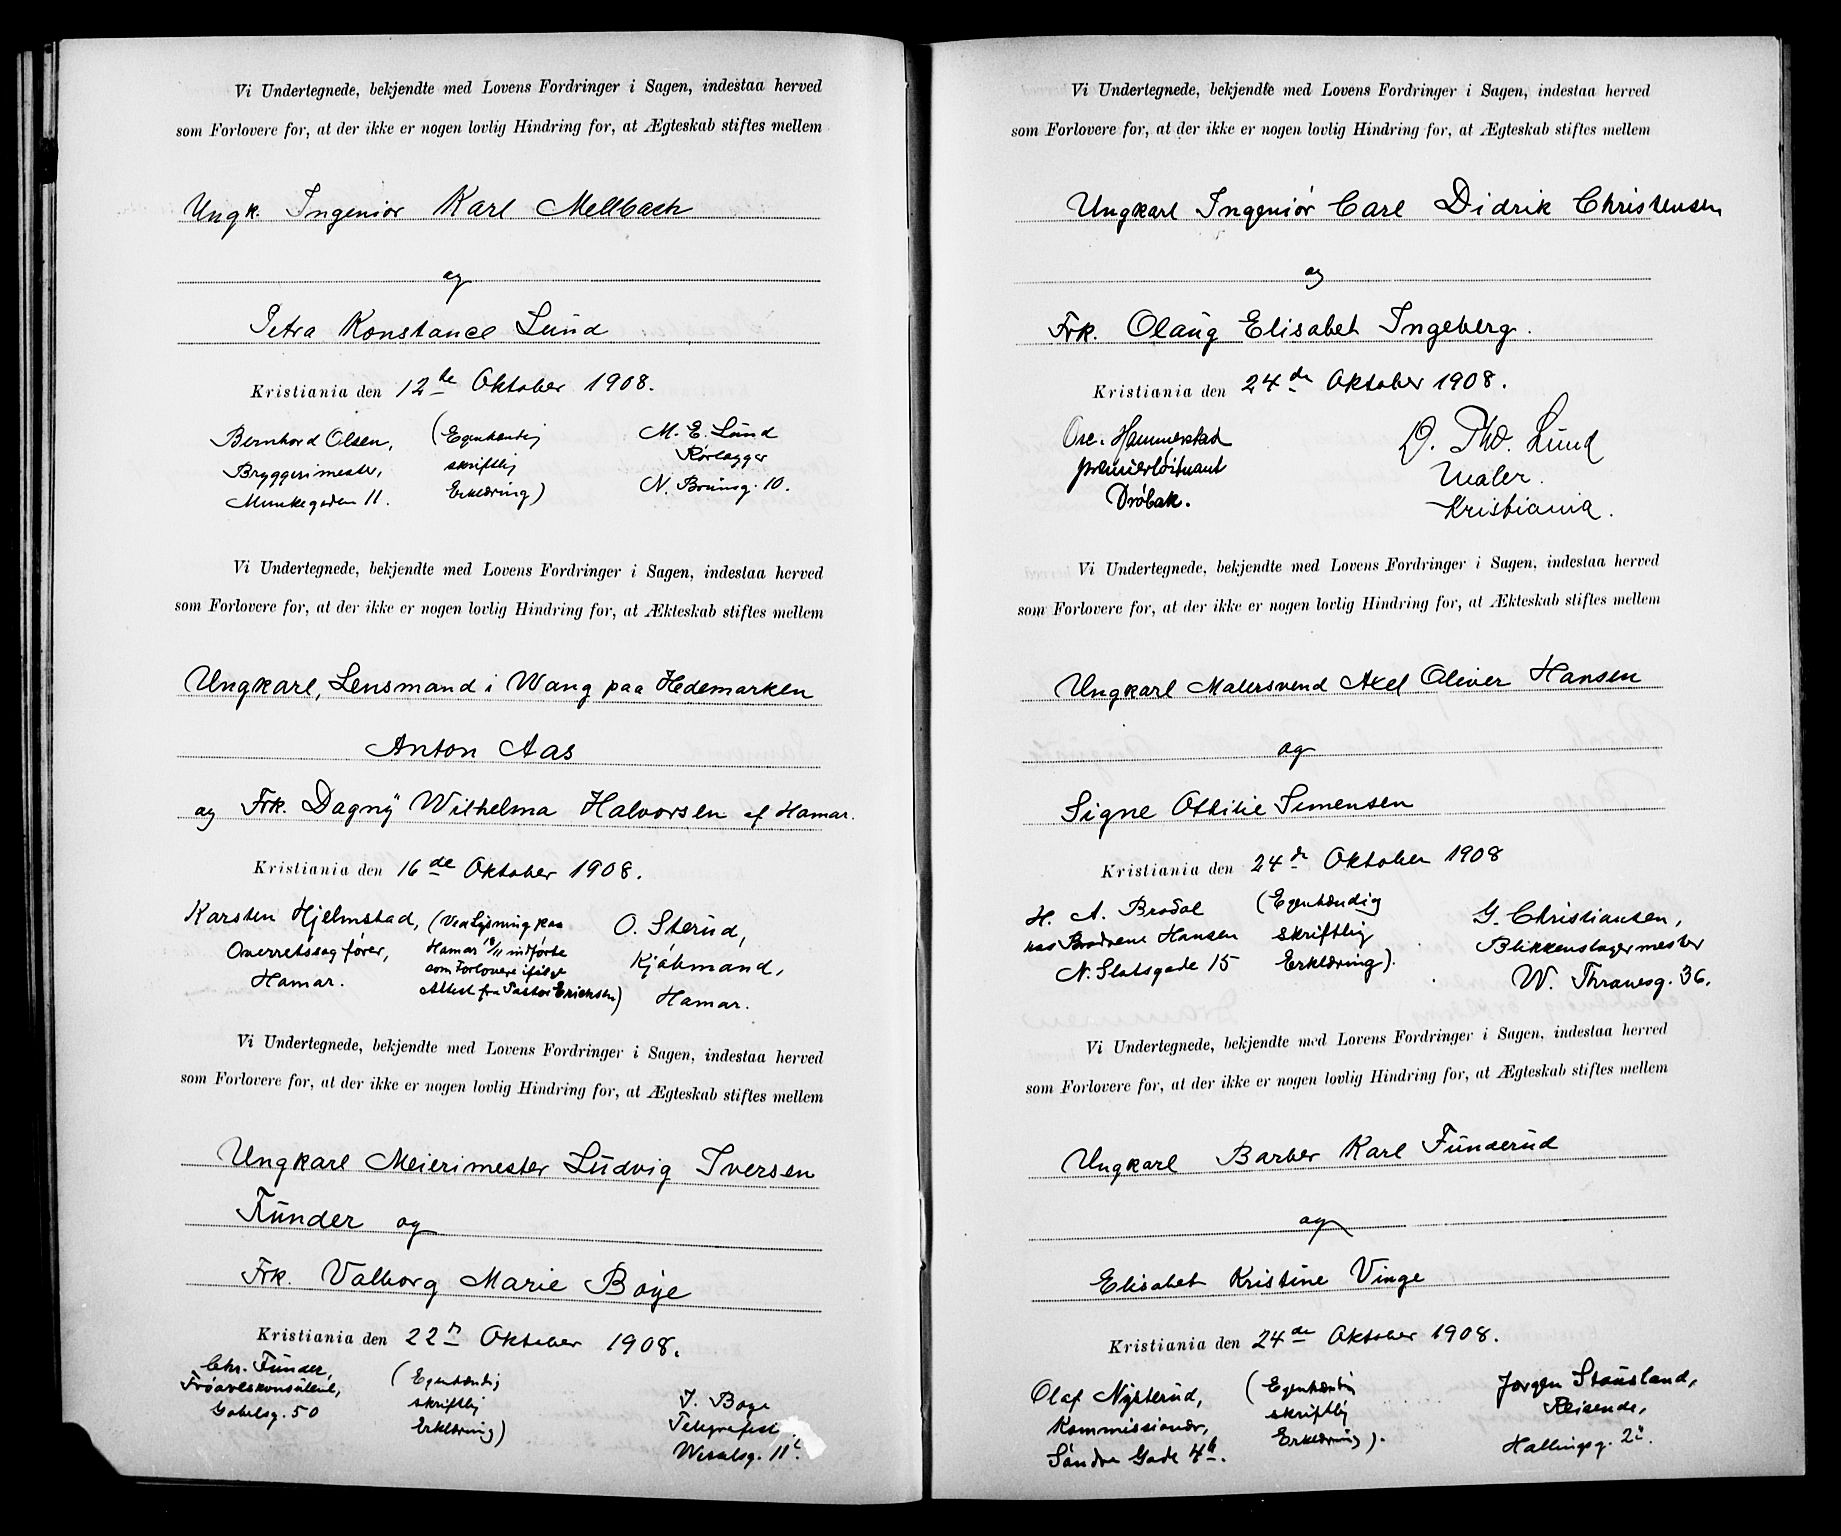 Vi Undertegnede, bekjendte med Lovens Fordringer i Sagen, indestaa herved
som Forlovere for, at der ikke er nogen lovlig Hindring for, at Ægteskab stiftes mellem
Ungk. Ingeniør Karl Mellbach
og
Petra Konstance Lund
Kristiania den 12te Oktober 1908.
Bernhard Olsen, (Egenhændig M. E. Lund
Bryggerimester, skriftlig Rørlægger
Munkegaden 11. Erklæring) N. Brunsg. 10.
Vi Undertegnede, bekjendte med Lovens Fordringer i Sagen, indestaa herved
som Forlovere for, at der ikke er nogen lovlig Hindring for, at Ækteskab stiftes mellem
Ungkarl, Lensmand i Wang paa Hedemarken
Anton Aas
og Frk. Dagny Wilhelma Halvorsen af Hamar.
Kristiania den 16de Oktober 1908.
Karsten Hjelmstad, (Ved Lysning paa O. Sterud,
Overretssagfører, Hamar 18/11 indførte Kjøbmand,
Hamar. som Forlovere ifølge Hamar.
Attest fra Pastor Erichsen)
Vi Undertegnede, bekjendte med Lovens Fordringer i Sagen, indestaa herved
som Forlovere for, at der ikke er nogen lovlig Hindring for, at Ægteskab stiftes mellem
Ungkarl Meierimester Ludvig Iversen
Funder og
Frk. Valborg Marie Boye
Kristiania den 22n Oktober 1908.
Chr. Funder, (Egenhændig J. Boye
Frøavlskonsulent, skriftlig Telegrafest
Gabelsg. 50 Erklæring) 11
Vi Undertegnede, bekjendte med Lovens Fordringer i Sagen, indestaa herved
som Forlovere for, at der ikke er nogen lovlig Hindring for, at Ægteskab stiftes mellem
Ungkarl Ingeniør Carl Didrik Christensen
og
Frk. Olaug Elisabet Ingeberg.
Kristiania den 24de Oktober 1908.
Osc. Hammerstad O. Thv. Lund
premierløitnant Maler.
Drøbak. Kristiania.
Vi Undertegnede, bekjendte med Lovens Fordringer i Sagen, indestaa herved
som Forlovere for, at der ikke er nogen lovlig Hindring for, at Ækteskab stiftes mellem
Ungkarl Malersvend Axel Oliver Hansen
og
Signe Othilie Simensen
Kristiania den 24de Oktober 1908
H. A. Brodal (Egenhændig G. Christiansen,
hos Brødrene Hansen skriftlig Blikkenslagermester
N. Slotsgade 15 Erklæring). W. Thranesg. 36.
Vi Undertegnede, bekjendte med Lovens Fordringer i Sagen, indestaa herved
som Forlovere for, at der ikke er nogen lovlig Hindring for, at Ægteskab stiftes mellem
Ungkarl Barber Karl Funderud
og
Elisabet Kristine Vinge
Kristiania den 24de Oktober 1908.
Olaf Nysterud, (Egenhændig Jørgen Stousland,
Kommissionær, skriftlig Reisende,
Søndre Gade 4b. Erklæring). Hallingsg. 2